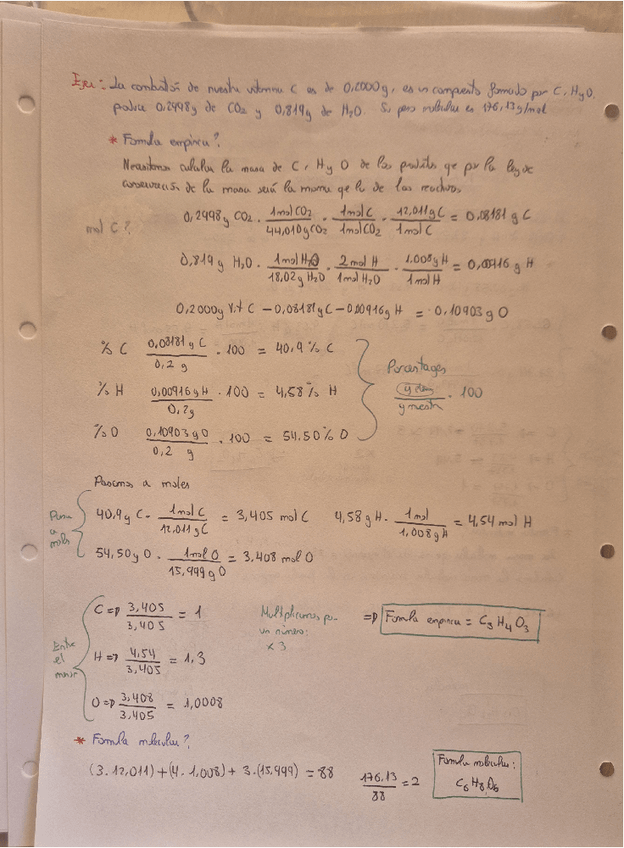 Ejer: La combustión de nuestra vitamina C es de 0,2000g, es un compuesto formado por C, H y O.
produce 0,2998g de CO2 y 0,819g de H2O. Su peso molecular es 176,13g/mol
* Formula empirica?
Necesitamos calcular la masa de C, H y O de los productos que por la ley de
conservación de la masa será la misma que la de los reactivos
mol C?
0,2998g CO2 · 1mol CO2/44,010g CO2 · 1mol C/1mol CO2 · 12,011g C/1mol C = 0,08181 g C
0,819 g H2O · 1mol H2O/18,02g H2O · 2mol H/1mol H2O · 1.008g H/1mol H = 0,00916 g H
0,2000g Vit C - 0,08181g C - 0,00916g H = 0,10903g O
% C 0,08181 g C/0,2 g · 100 = 40,9 % C
% H 0,00916 g H/0,2g · 100 = 4,58 % H
% O 0,10903 g O/0,2 g · 100 = 54,50 % O
Porcentages
g de/g muestra · 100
Pasamos a moles
a moles
40,9g C · 1mol C/12,011g C = 3,405 mol C 4,58g H · 1mol/1,008g H = 4,54 mol H
54,50g O · 1mol O/15,999g O = 3,408 mol O
Entre el menor
C => 3,405/3,405 = 1
H => 4,54/3,405 = 1,3
O => 3,408/3,405 = 1,0008
Multiplicamos por
un número:
x 3
=> Formula empirica = C3H4O3
* Formula molecular?
(3·12,011)+(4·1,008)+3·(15,999) = 88 176,13/88 = 2
Formula molecular:
C6H8O6